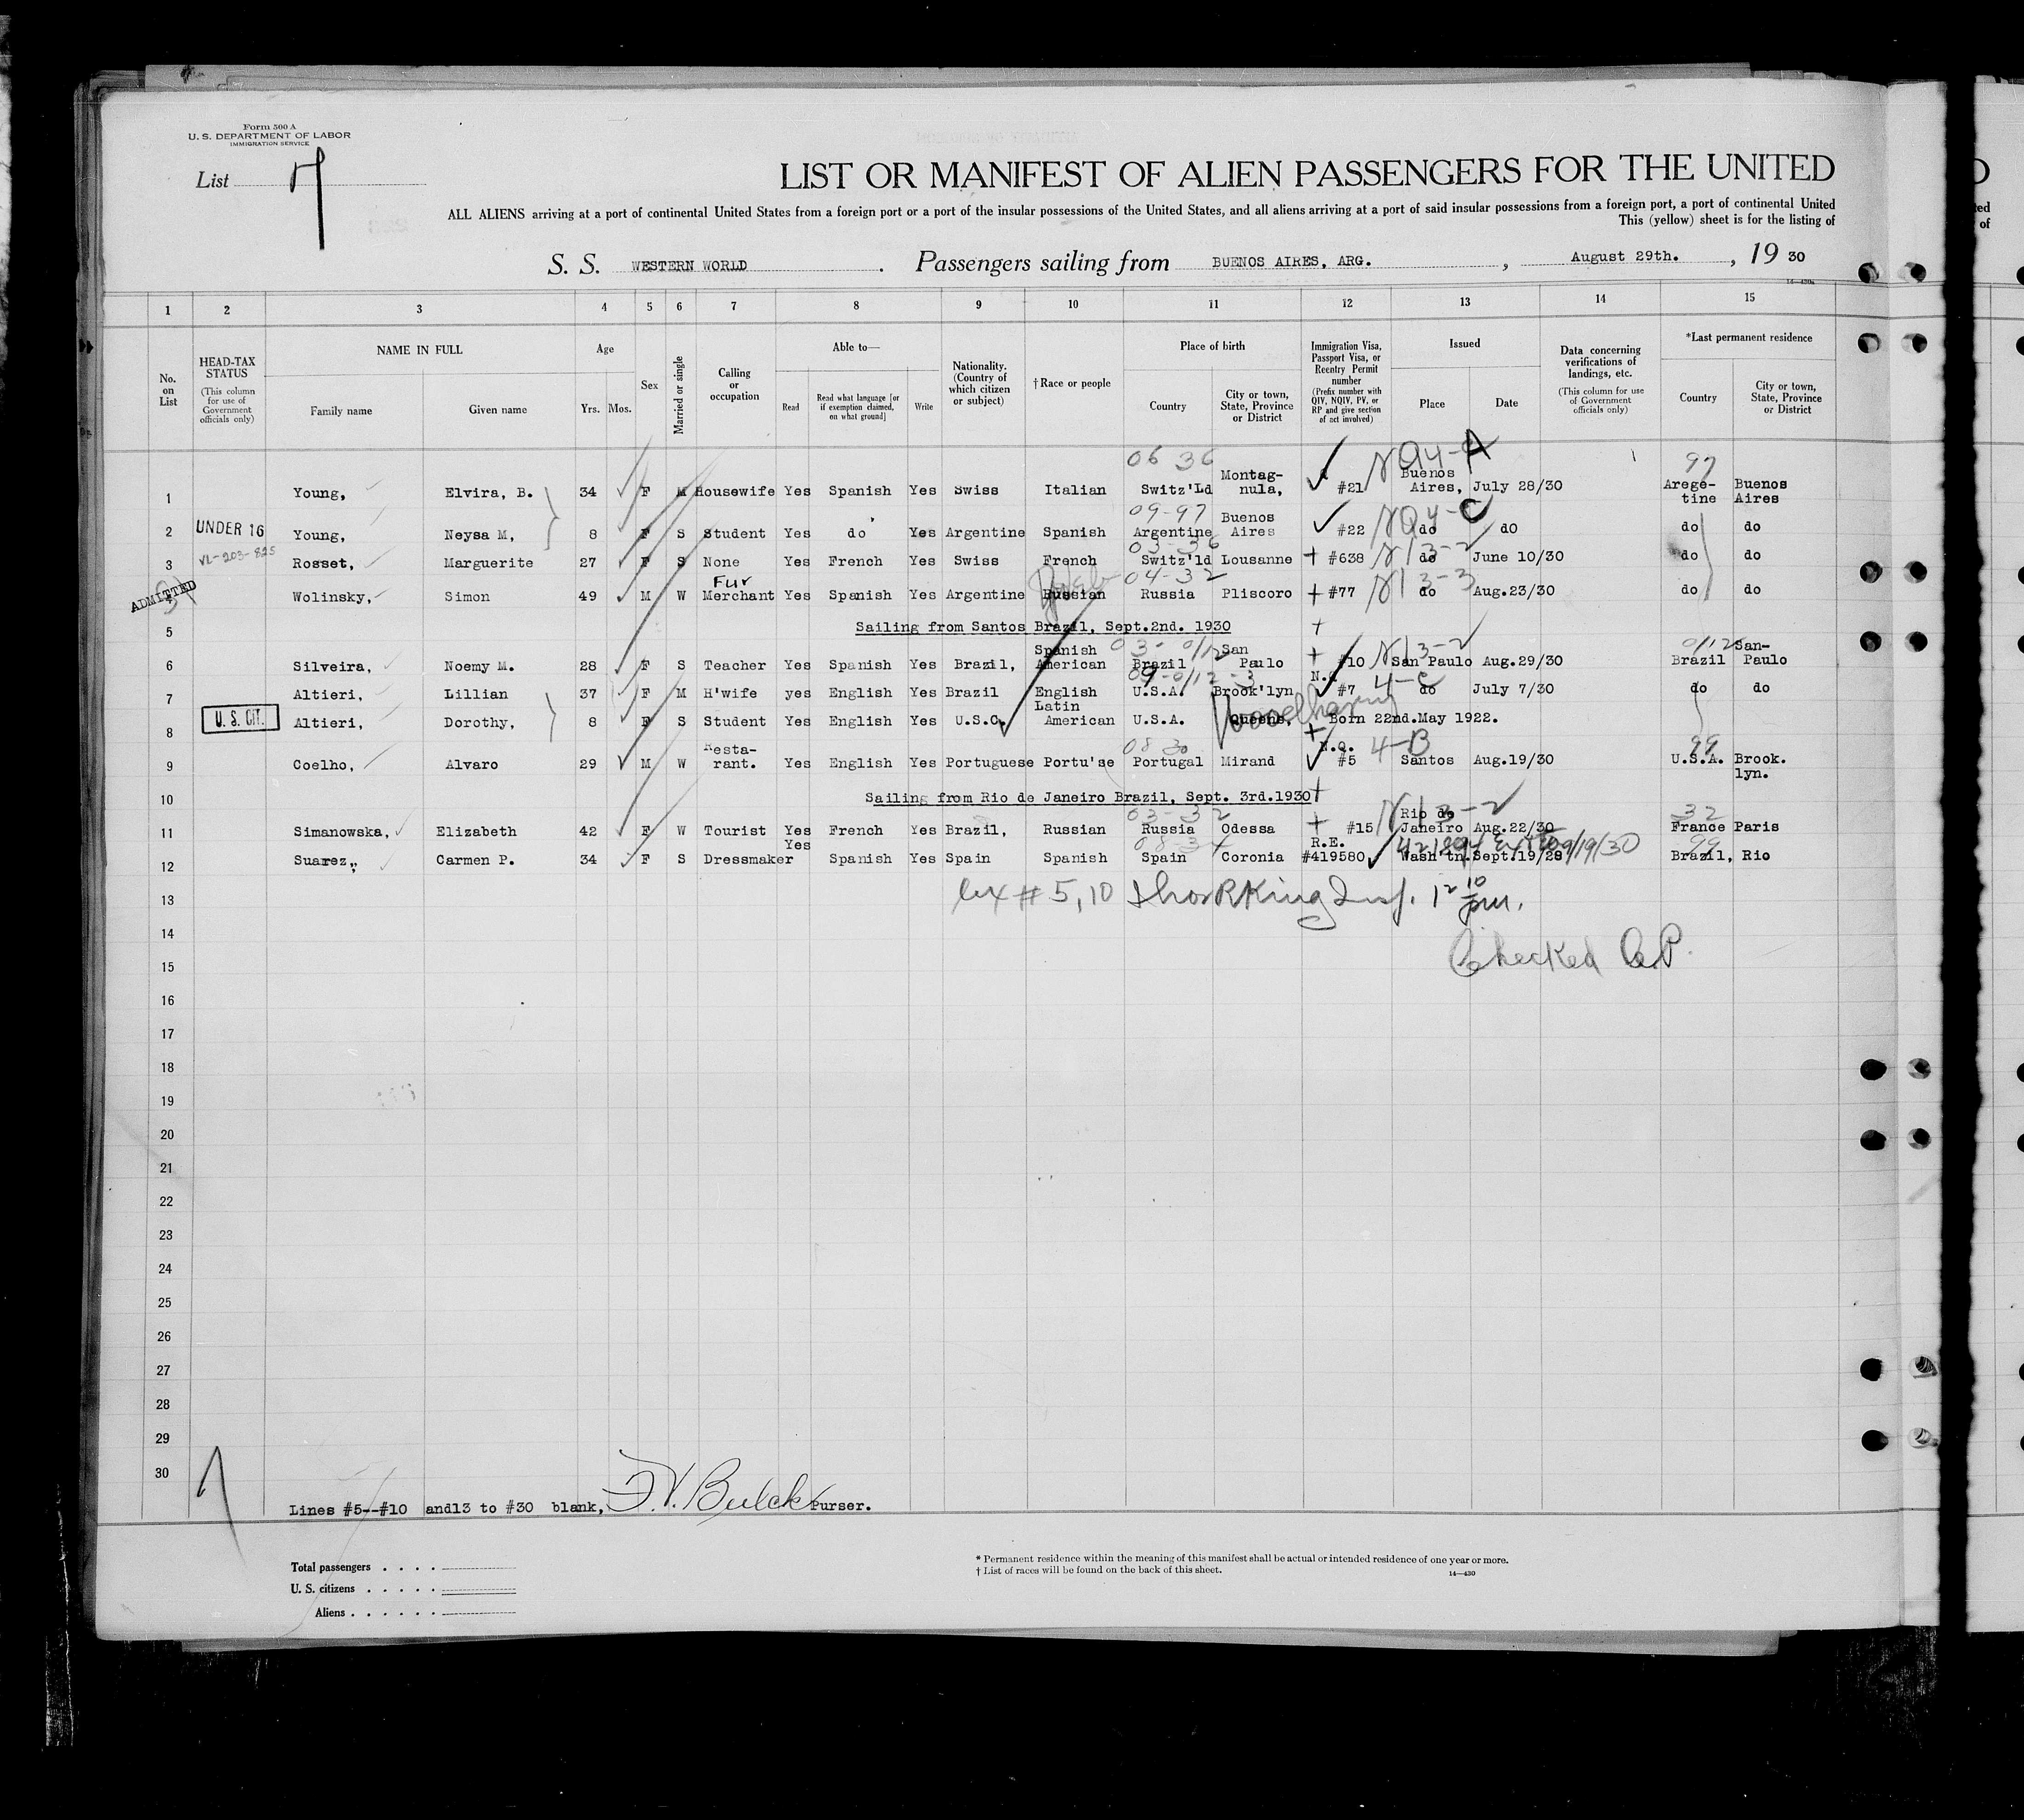 Form 500 A
U. S. DEPARTMENT OF LABOR
IMMIGRATION SERVICE
List
LIST OR MANIFEST OF ALIEN PASSENGERS FOR THE UNITED
ALL ALIENS arriving at a port of continental United States from a foreign port or a port of the insular possessions of the United States, and all aliens arriving at a port of said insular possessions from a foreign port, a port of continental United
This (yellow) sheet is for the listing of
S. S. WESTERN WORLD . Passengers sailing from BUENOS AIRES, ARG. , August 29th. , 19 30
1 2 3 4 5 6 7 8 9 10 11 12 13 14 15
No. on List
HEAD-TAX STATUS (This column for use of Government officials only)
NAME IN FULL Family name Given name
Age Yrs. Mos.
Sex
Married or single
Calling or occupation
Able to— Read Read what language [or if exemption claimed, on what ground] Write
Nationality. (Country of which citizen or subject)
† Race or people
Place of birth Country City or town, State, Province or District
Immigration Visa, Passport Visa, or Reentry Permit number (Prefix number with QIV, NQIV, PV, or RP and give section of act involved)
Issued Place Date
Data concerning verifications of landings, etc. (This column for use of Government officials only)
*Last permanent residence Country City or town, State, Province or District
06 36 94-A 97
1 Young, Elvira, B. 34 F M Housewife Yes Spanish Yes Swiss Italian Switz'Ld Montag-nula, #21 Buenos Aires, July 28/30 Arege-tine Buenos Aires
09-97 94-C
2 UNDER 16 Young, Neysa M, 8 F S Student Yes do Yes Argentine Spanish Argentine Buenos Aires #22 do dO do do
03-36 13-2
3 VL-203-825 Rosset, Marguerite 27 F S None Yes French Yes Swiss French Switz'ld Lousanne #638 do June 10/30 do do
04-32 13-3
ADMITTED Wolinsky, Simon 49 M W Fur Merchant Yes Spanish Yes Argentine Russian Russia Pliscoro #77 do Aug.23/30 do do
5 Sailing from Santos Brazil, Sept.2nd. 1930
03-0/12 13-2 0/12
6 Silveira, Noemy M. 28 F S Teacher Yes Spanish Yes Brazil, Spanish American Brazil San Paulo #10 San Paulo Aug.29/30 Brazil San-Paulo
7 Altieri, Lillian 37 F M H'wife yes English Yes Brazil English U.S.A. Brook'lyn N.Q. #7 4-C do July 7/30 do do
8 U. S. CIT. Altieri, Dorothy, 8 F S Student Yes English Yes U.S.C. Latin American U.S.A. Queens, Woodhaven Born 22nd.May 1922.
08 30 4-B 99
9 Coelho, Alvaro 29 M W Resta-rant. Yes English Yes Portuguese Portu'se Portugal Mirand N.Q. #5 Santos Aug.19/30 U.S.A. Brook.lyn.
10 Sailing from Rio de Janeiro Brazil, Sept. 3rd.1930
03-32 13-2 32
11 Simanowska, Elizabeth 42 F W Tourist Yes French Yes Brazil, Russian Russia Odessa #15 Rio de Janeiro Aug.22/30 France Paris
12 Suarez,, Carmen P. 34 F S Dressmaker Yes Spanish Yes Spain Spanish Spain Coronia R.E. #419580 Wash'tn. Sept.19/28 Brazil, Rio
13 # 5, 10
14
Checked
15
16
17
18
19
20
21
22
23
24
25
26
27
28
29
30
Lines #5--#10 and13 to #30 blank, F.V. Bulck Purser.
Total passengers . . . .
U. S. citizens . . . . .
Aliens . . . . . .
* Permanent residence within the meaning of this manifest shall be actual or intended residence of one year or more.
† List of races will be found on the back of this sheet.
14—430